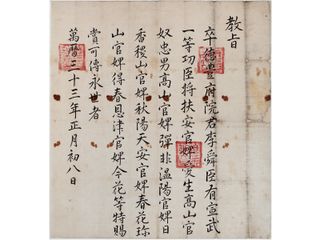 教旨
卒德豊府院君李舜臣有宣武
一等功臣將扶安官婢愛生高山官
奴忠男高山官婢彈非温陽官婢日
香稷山官婢秋陽天安官婢春花珎
山官婢得春恩津官婢今花等特賜
賞可傳永世者
萬曆三十三年正月初八日